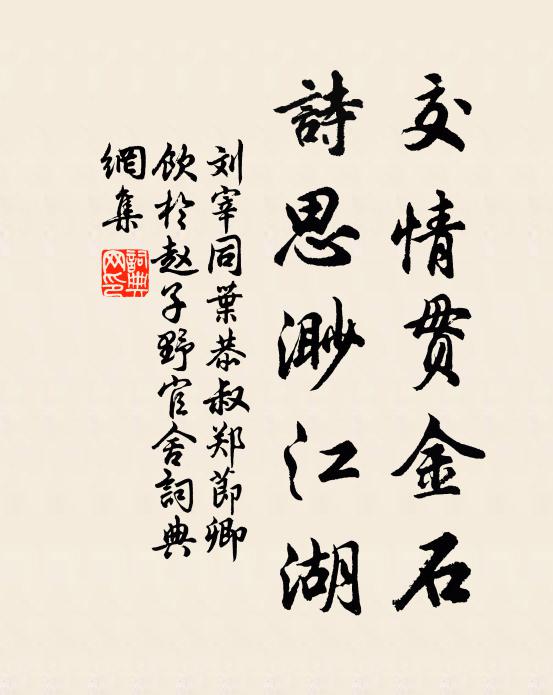 交情贯金石
詩思渺江湖
刘宰同葉恭叔郑節卿
飲於赵子野官舍詞典
網集
詞典網印